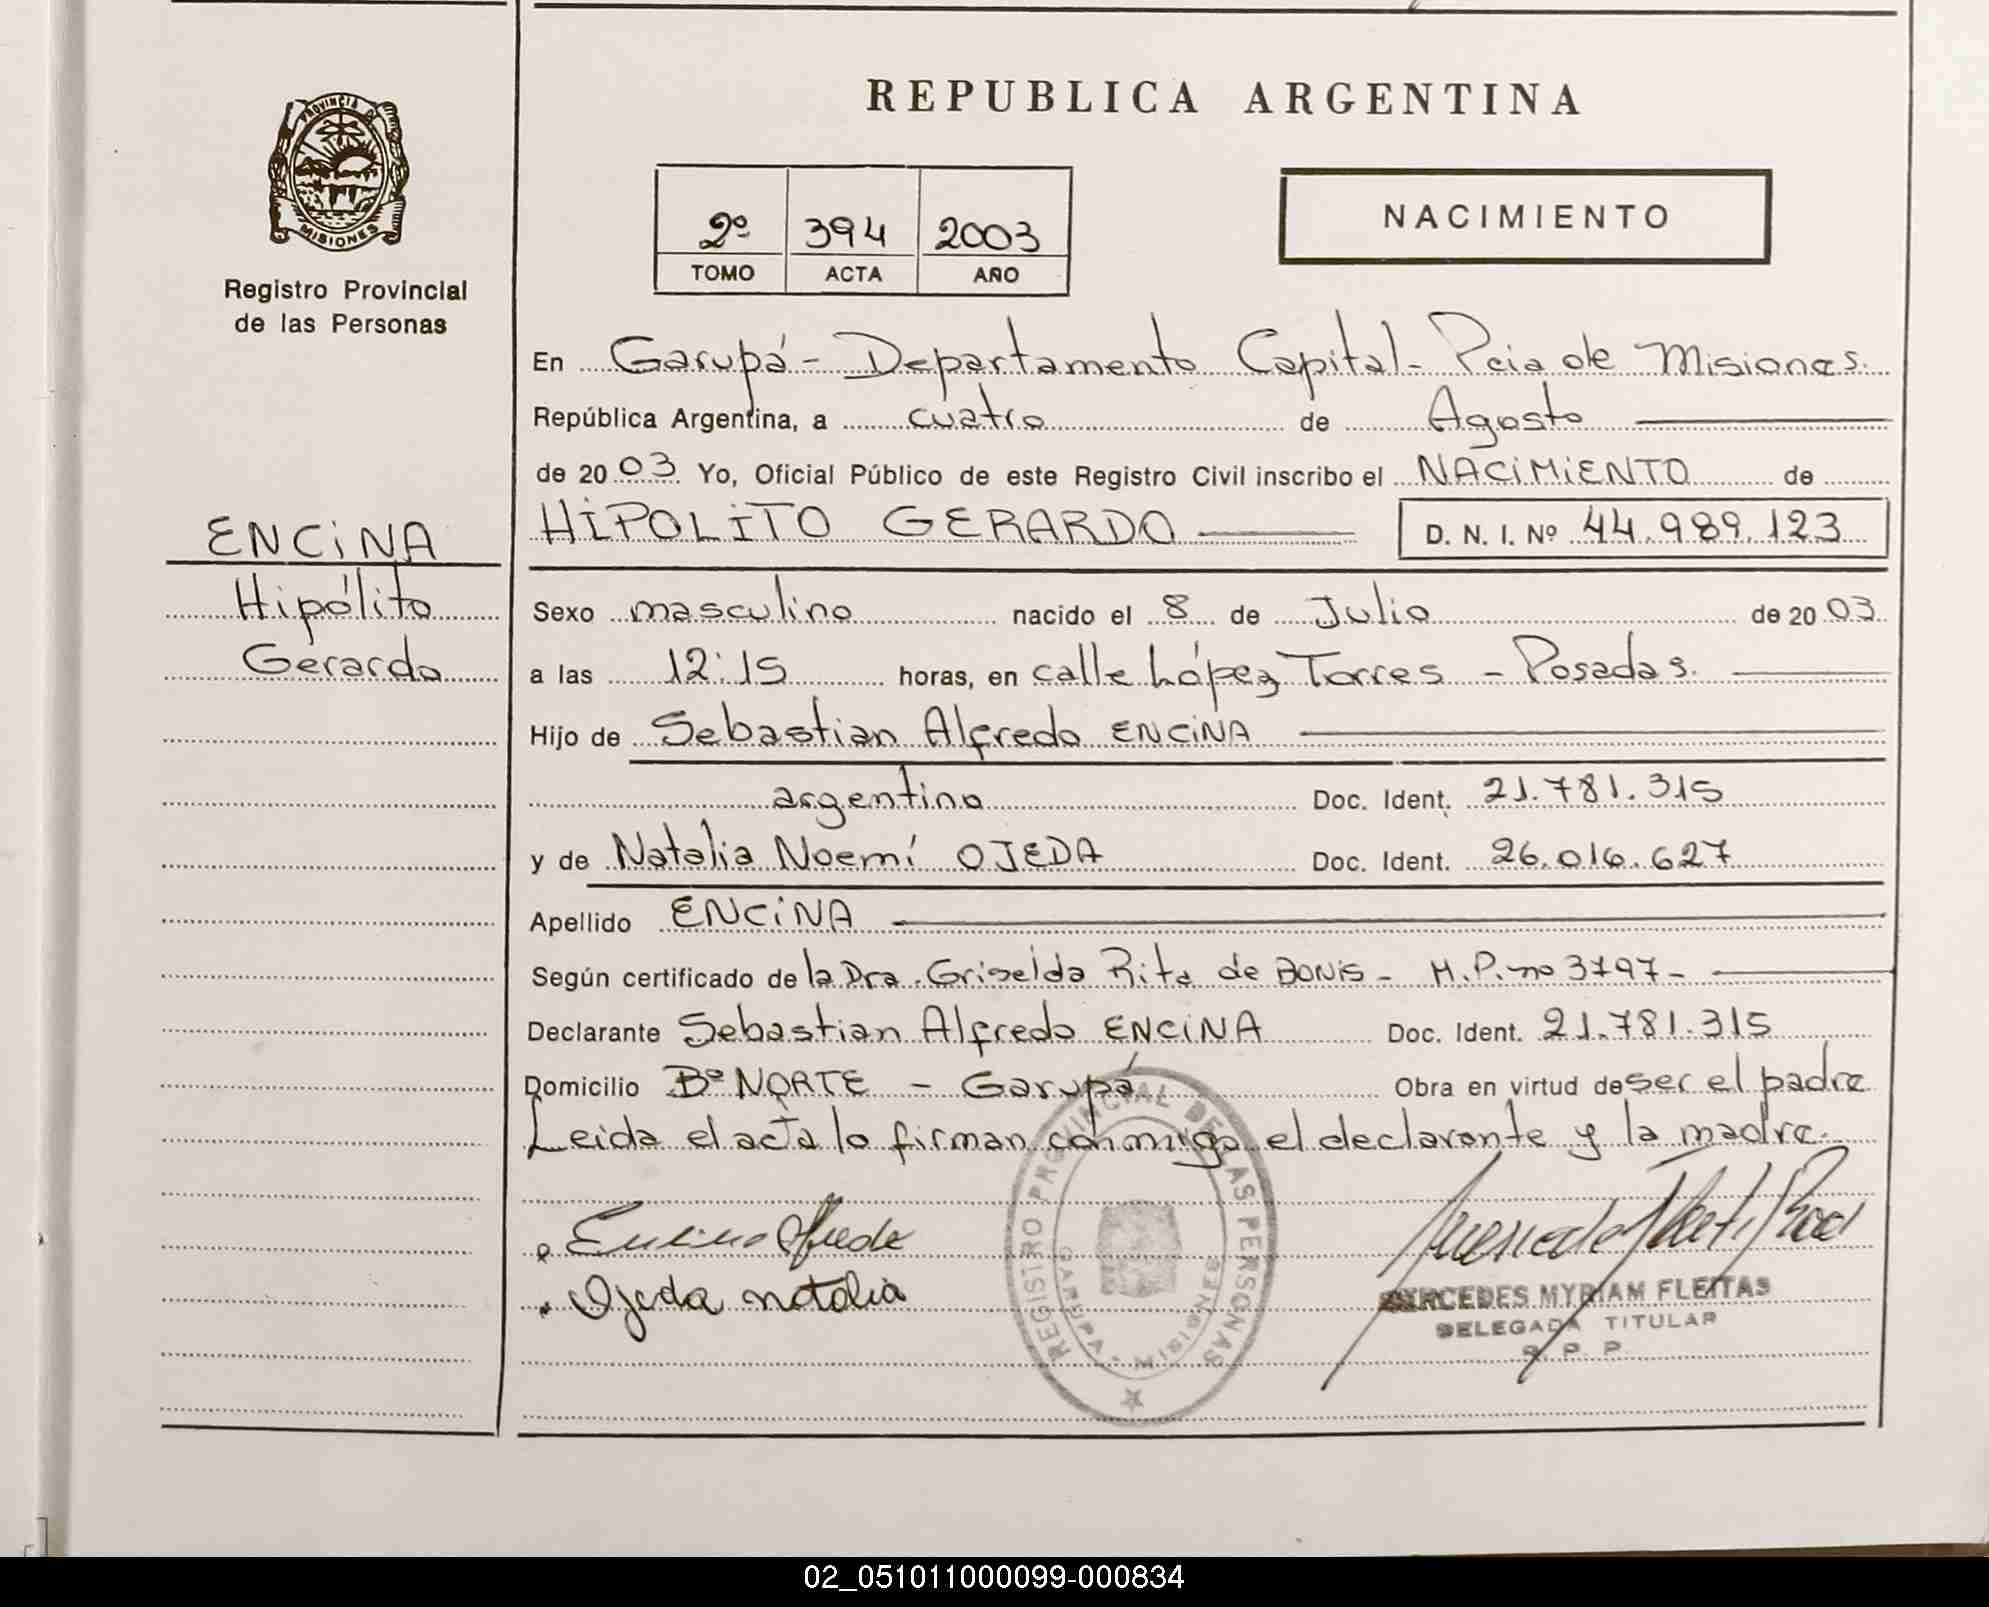 REPUBLICA ARGENTINA
PROVINCIA DE
MISIONES
Registro Provincial
de las Personas
2º 394 2003
TOMO ACTA AÑO
NACIMIENTO
En Garupá - Departamento Capital - Pcia de Misiones.
República Argentina, a cuatro de Agosto
de 20 03 Yo, Oficial Público de este Registro Civil inscribo el NACIMIENTO de
HIPOLITO GERARDO D. N. I. Nº 44.989.123
ENCINA
Hipólito
Gerardo
Sexo masculino nacido el 8 de Julio de 20 03
a las 12:15 horas, en calle López Torres - Posadas.
Hijo de Sebastian Alfredo ENCINA
argentino Doc. Ident. 21.781.315
y de Natalia Noemí OJEDA Doc. Ident. 26.016.627
Apellido ENCINA
Según certificado de la Dra. Griselda Rita de BONIS - M.P. nº 3797-
Declarante Sebastian Alfredo ENCINA Doc. Ident. 21.781.315
Domicilio Bº NORTE - Garupá Obra en virtud de ser el padre
Leida el acta lo firman conmigo el declarante y la madre.
Encina Alfredo
Ojeda natalia
REGISTRO PROVINCIAL DE LAS PERSONAS
GARUPA - MISIONES
MERCEDES MYRIAM FLEITAS
DELEGADA TITULAR
R. P. P.
02_051011000099-000834